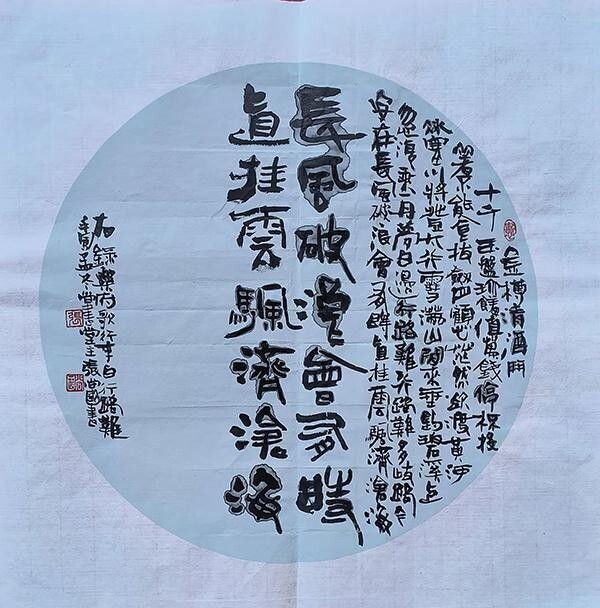 金樽清酒斗
十千玉盤珍饈值萬錢停杯投
箸不能食拔劍四顧心茫然欲渡黃河
冰塞川將登太行雪滿山閑來垂釣碧溪上
忽復乘舟夢日邊行路難行路難多歧路今
安在長風破浪會有時直挂雲颿濟滄海
長風破浪會有時
直挂雲颿濟滄海
右錄樂府歌行李白行路難
卯孟冬堂主張國書